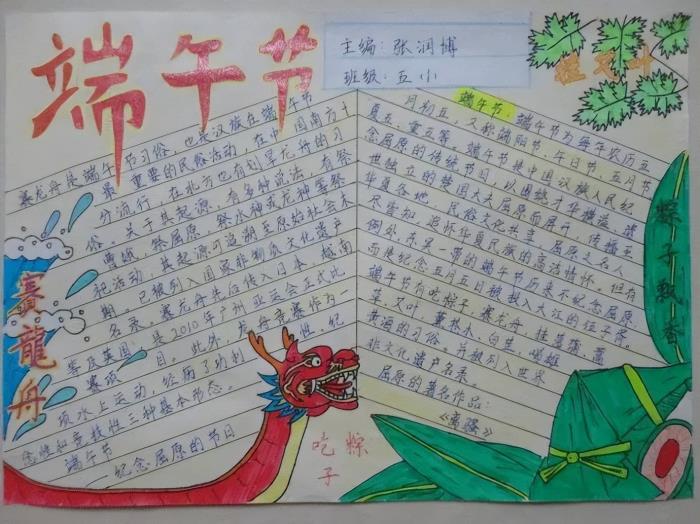 端午节
主编：张润博
班级：五小
挂艾叶
赛龙舟是端午节习俗，也是汉族在端午节
最重要的民俗活动，在中国南方十
分流行，在北方也有划旱龙舟的习
俗。关于其起源，有多种说法，有祭
曹娥，祭屈原，祭水神或龙神等祭
祀活动，其起源可追溯至原始社会末
期。已被列入国家非物质文化遗产
名录。赛龙舟先后传入日本、越南
等及英国，是2010年广州亚运会正式比
赛项目。此外，龙舟竞赛作为一
项水上运动，经历了功利性、纪
念性和竞技性三种基本形态。
端午节
——纪念屈原的节日
端午节：端午节为每年农历五
月初五，又称端阳节、午日节、五月节
夏五、重五等。端午节是中国汉族人民纪
念屈原的传统节日，以围绕才华横溢、遗
世独立的楚国大夫屈原而展开，传播至
华夏各地，民俗文化共享，屈原之名人
尽皆知，追怀华夏民族的高洁情怀。但有
例外，东吴一带的端午节历来不纪念屈原，
而是纪念五月五日被投入大江的伍子胥。
端午节有吃粽子，赛龙舟，挂菖蒲、蒿
草、艾叶，薰苍术、白芷，喝雄
黄酒的习俗。并被列入世界
非文化遗产名录。
屈原的著名作品：
《离骚》
赛龍舟
吃粽子
粽子飘香